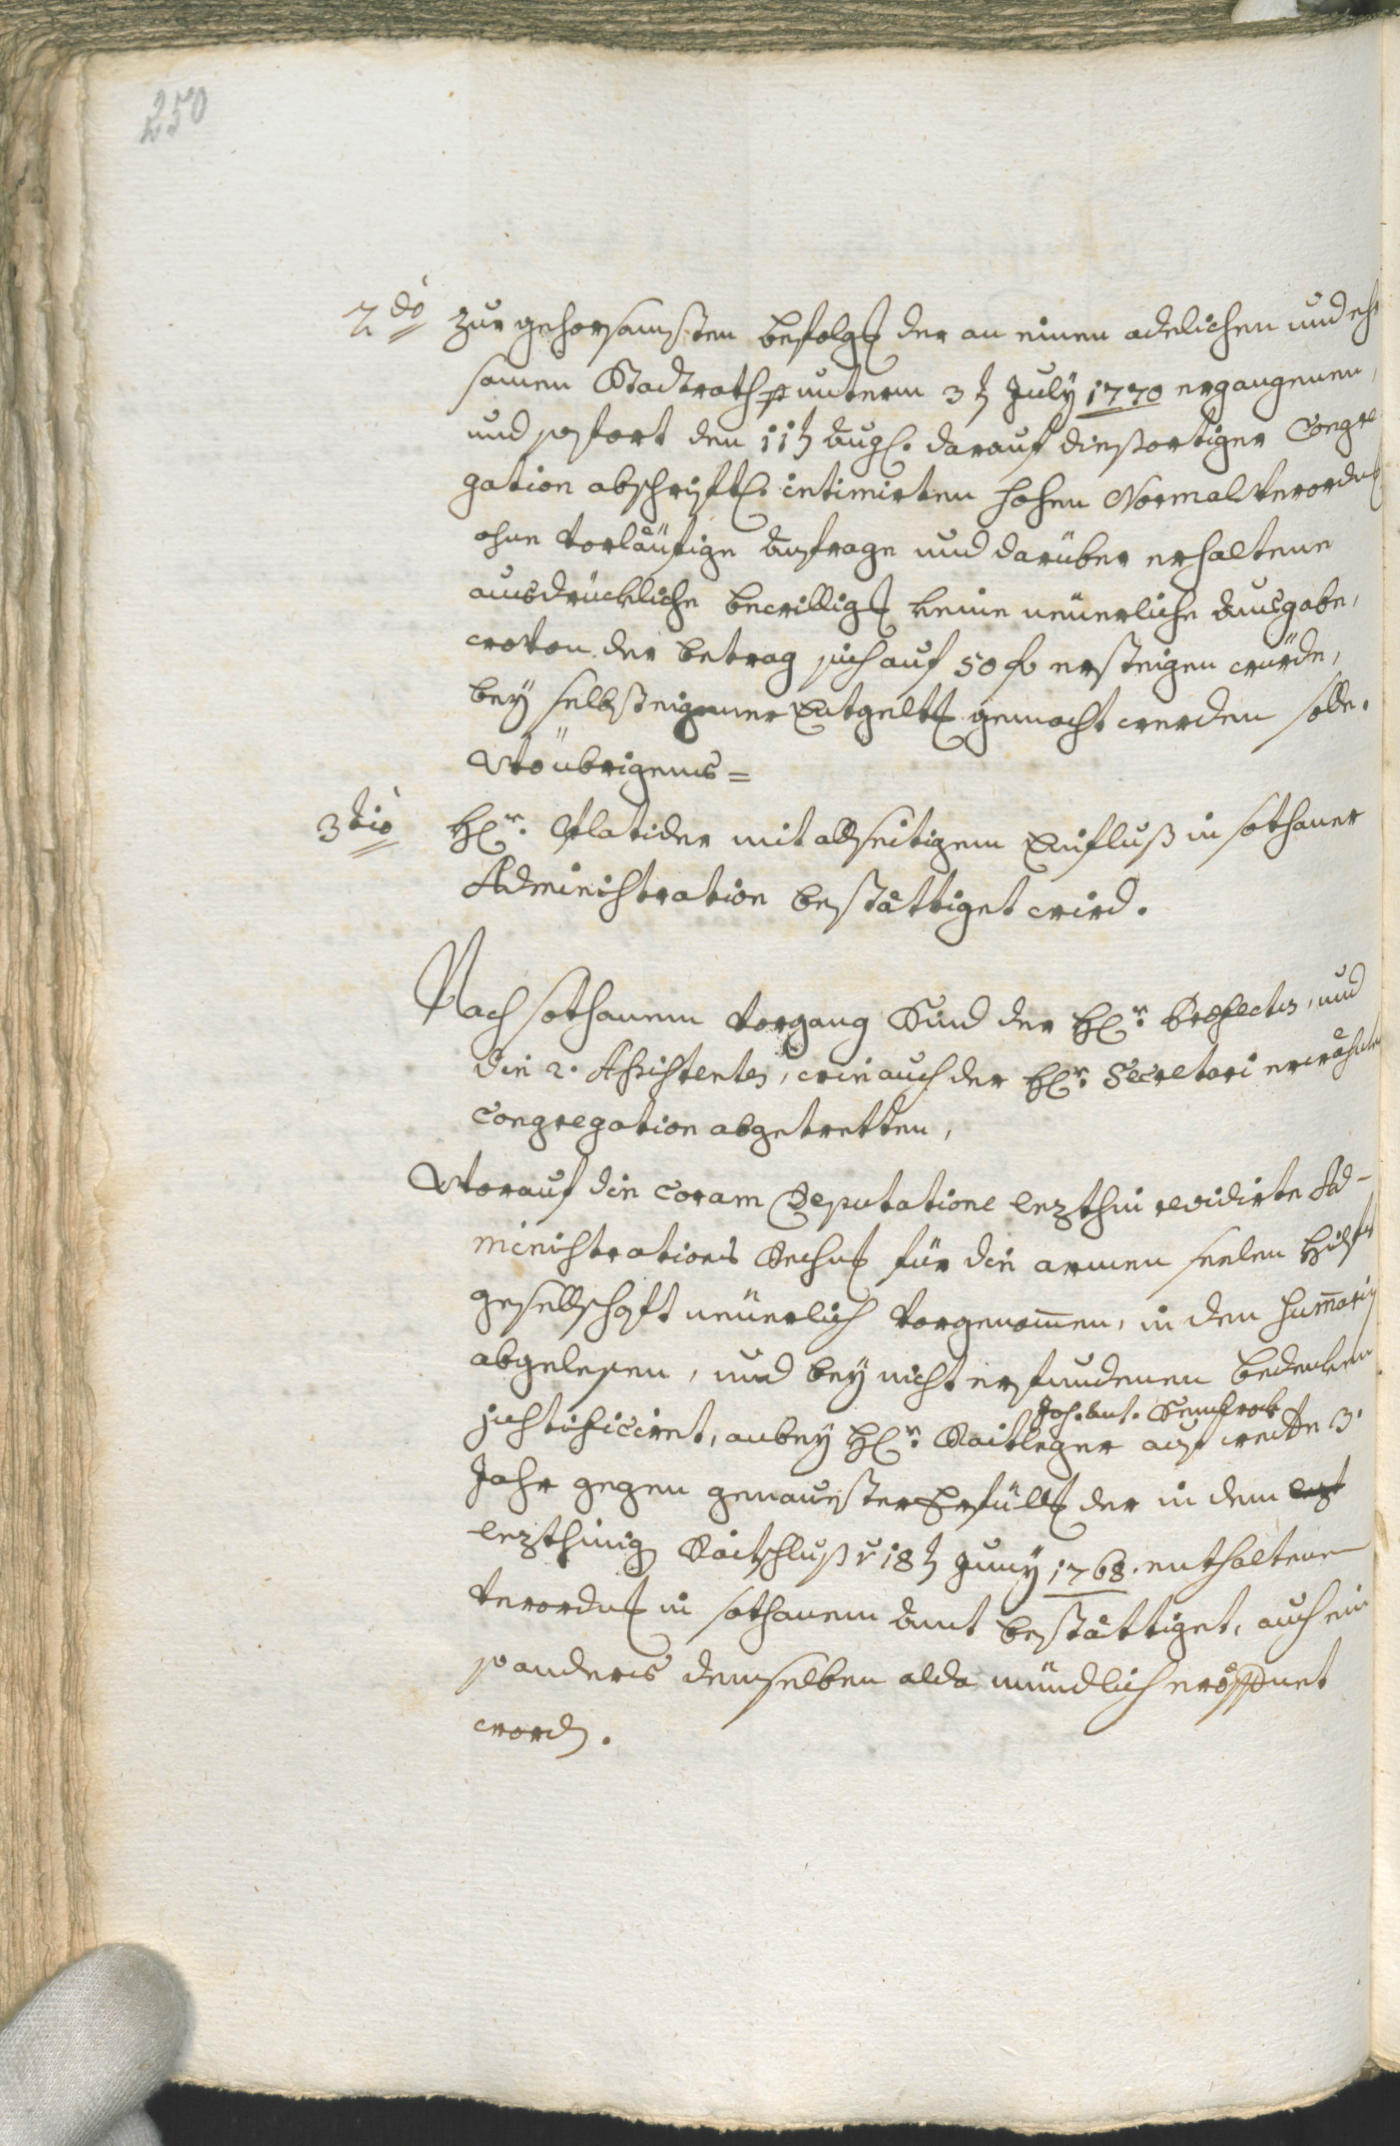 250
2do zur gehorsamsten befolg der an einen adelichen und ehr
samen Stadtrath unterm 3t July 1770 ergangenen,
und sofort den 11t Aug. darauf diesortiger Congre
gation abschriftl. intimirten hohen Normalverordn
ohne vorläufige Anfrage und darüber erhaltene
ausdrückliche bewillig keine neüerliche Ausgabe,
wovon der betrag sich auf 50 f ersteigen würde,
bey selbsteigener Entgelt gemacht werden solle.
Wo übrigens =
3tio H. Platider mit allseitigem Einfluß in sothaner
Administration bestättiget wird.
Nach sothanem Vorgang Sind der H. Præfectus, und
die 2. Assistentes, wie auch der H. Secretari erwähnter
Congregation abgetretten,
Worauf die coram Deputatione lezthin revidirte Ad-
ministrations Rechn für die armen seelen Hilfs
gesellschaft neüerlich vorgenommen, in den Summariis
abgelesen, und bey nicht erfundenen bedenken
Joh. Ant.
justificirt, anbey H. Raitleger auf weitte 3.
Jahr gegen genauester Erfüll der in dem lezt
lezthinig Raitschluß v 18t Juny 1768. enthaltenen
verordn in sothanem Amt bestättiget, auch ein
so anderes demselben alda mündlich eröffnet
word.